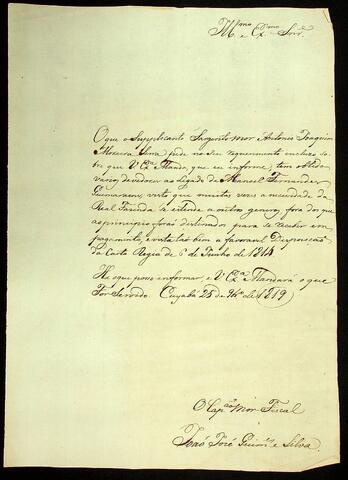 Il.mo e Ex.mo Snr.
O que o Supplicante Sargento mor Antonio Joaquim
Moreira Serra pede no seu requerimento incluzo so-
bre que V Ex.a Manda, que eu informe, tem obtido
varios devedores ao Legado de Manoel Fernandes
Guimaraens, visto que muitas vezes a necessidade da
Real Fazenda se estende a outros generos, fora dos que
ao principio foraõ destinados para se receber em
pagamento, e visto taõbem a favoravel Dispoziçaõ
da Carta Regia de 6 de Junho de 1814
He o que posso informar e V Ex.a Mandará o que
For Servido. Cuyabá 25 de 9br.o de 1819
O Cap.am Mor Fiscal
Joaõ Joze Guim.es e Silva